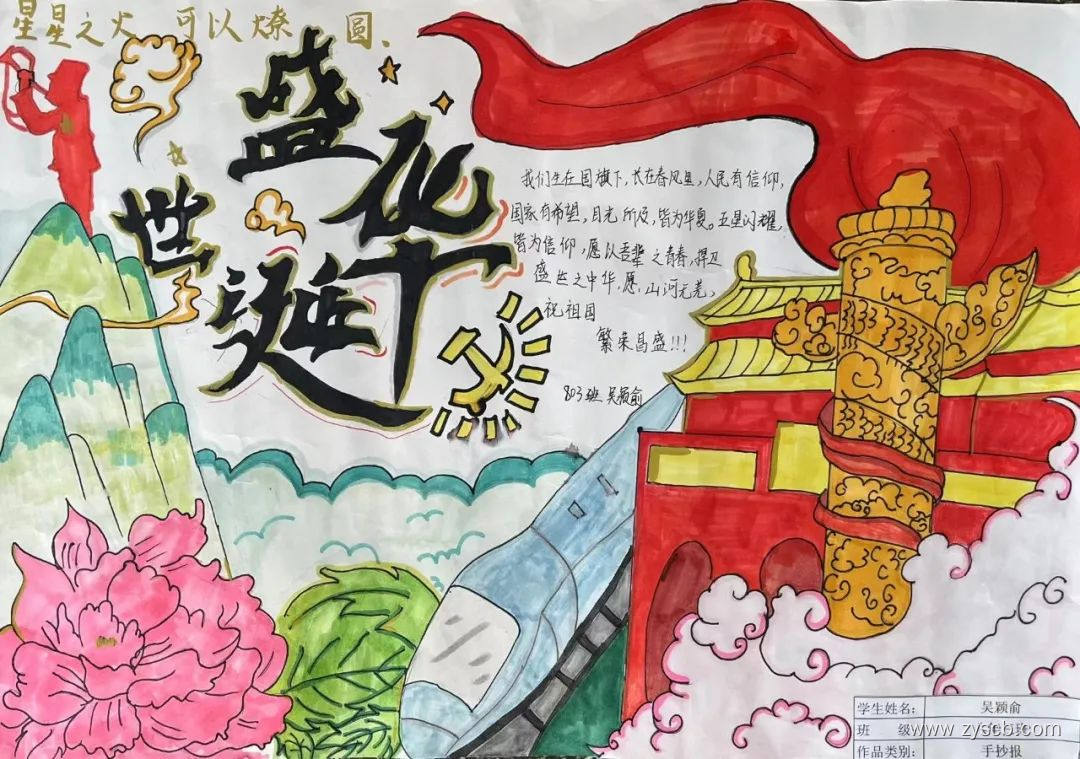 星星之火 可以燎 圆、
盛世华诞
我们生在国旗下,长在春风里,人民有信仰,
国家有希望。目光所及,皆为华夏。五星闪耀,
皆为信仰,愿以吾辈之青春,捍卫
盛世之中华,愿,山河无恙,
祝祖国
繁荣昌盛!!!
803班 吴颖俞
学生姓名: 吴颖俞
班 级
作品类别: 手抄报
www.zyscb.com